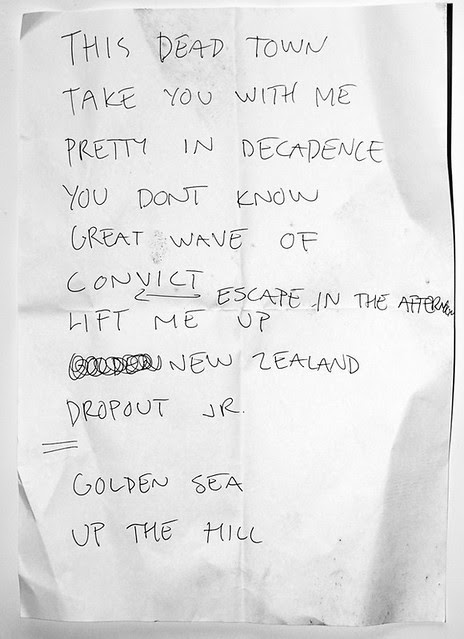 THIS DEAD TOWN
TAKE YOU WITH ME
PRETTY IN DECADENCE
YOU DONT KNOW
GREAT WAVE OF
CONVICT
ESCAPE IN THE AFTERNOON
LIFT ME UP
NEW ZEALAND
DROPOUT JR.
GOLDEN SEA
UP THE HILL